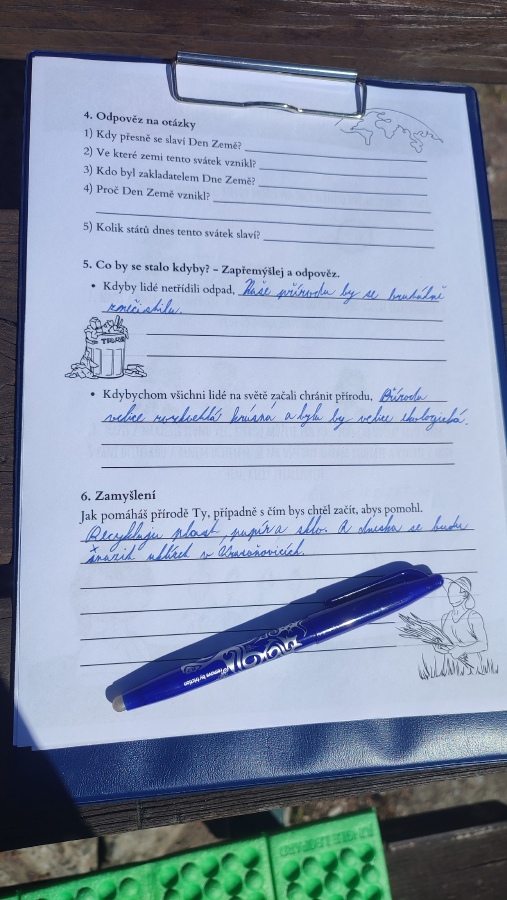 4. Odpověz na otázky
1) Kdy přesně se slaví Den Země?
2) Ve které zemi tento svátek vznikl?
3) Kdo byl zakladatelem Dne Země?
4) Proč Den Země vznikl?
5) Kolik států dnes tento svátek slaví?
5. Co by se stalo kdyby? – Zapřemýšlej a odpověz.
• Kdyby lidé netřídili odpad, Naše přírodu by se brutálně
znečistila.
TRASH
• Kdybychom všichni lidé na světě začali chránit přírodu, Příroda
velice rozkvetlá krásná a byla by velice ekologická.
6. Zamyšlení
Jak pomáháš přírodě Ty, případně s čím bys chtěl začít, abys pomohl.
Recykluju plast, papír a sklo. A dneska se budu
snažit uklízet v